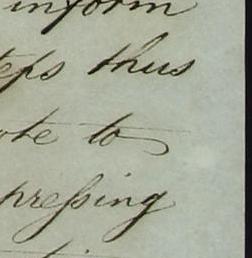 inform
teps thus
ote to
preſsing